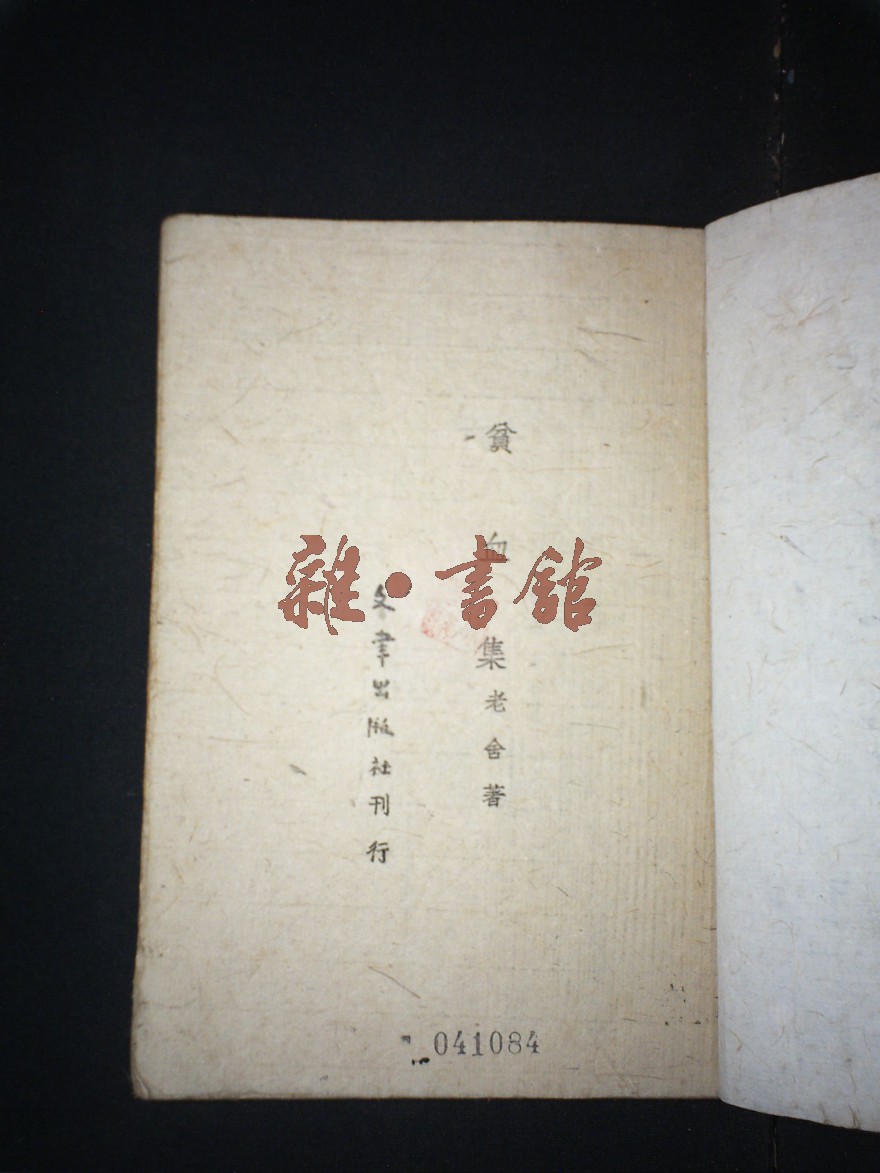 貧血集老舍著
文聿出版社刊行
雜·書館
041084